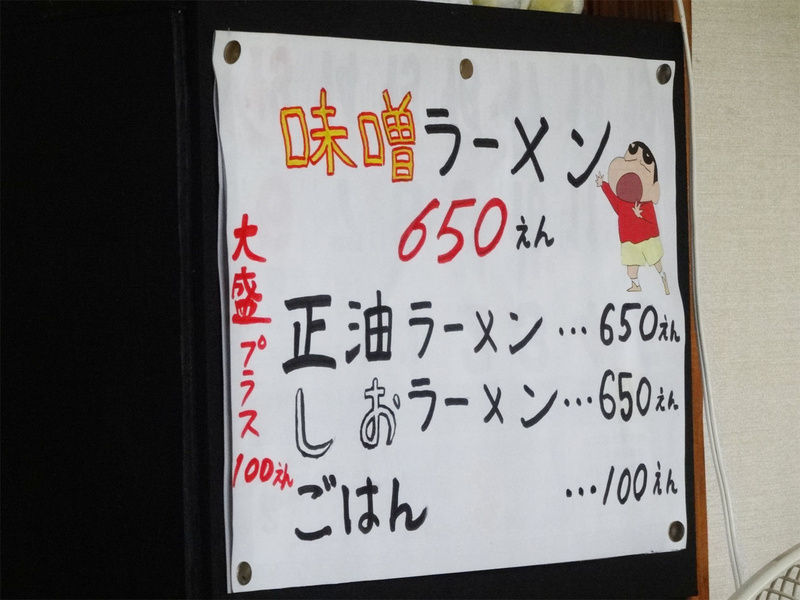 味噌ラーメン
650えん
正油ラーメン…650えん
しおラーメン…650えん
ごはん …100えん
大盛プラス100えん